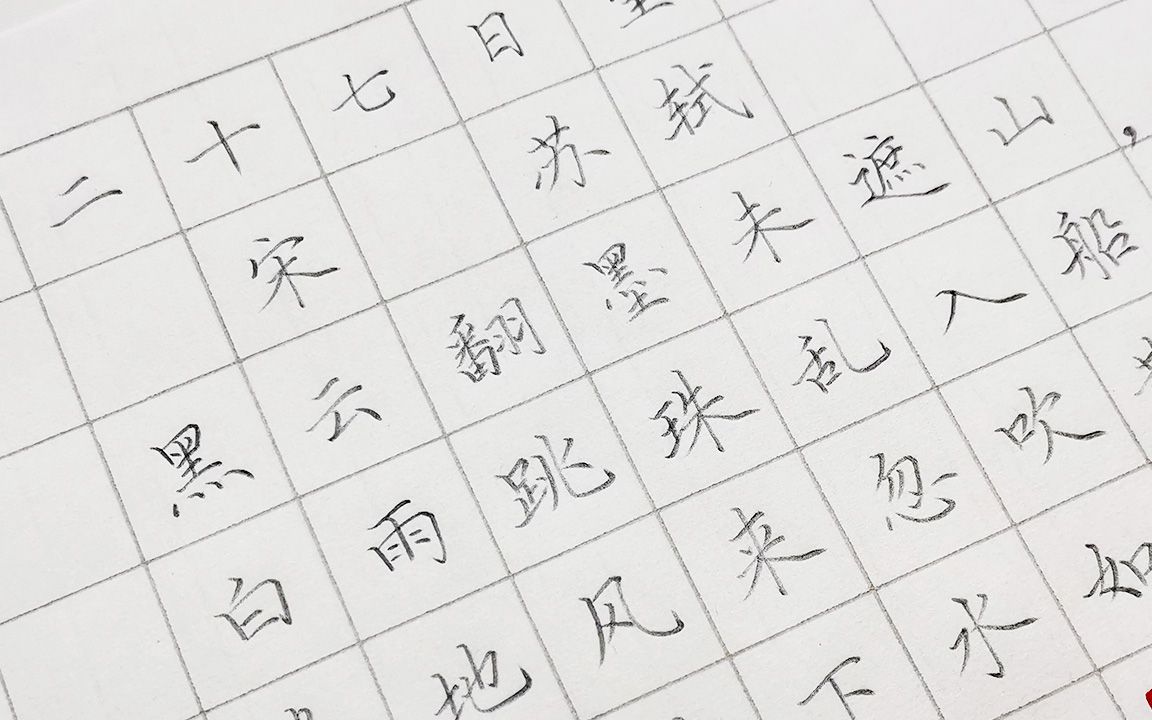 二十七日
宋 苏轼
黑云翻墨未遮山，
白雨跳珠乱入船
地风来忽吹
下水如